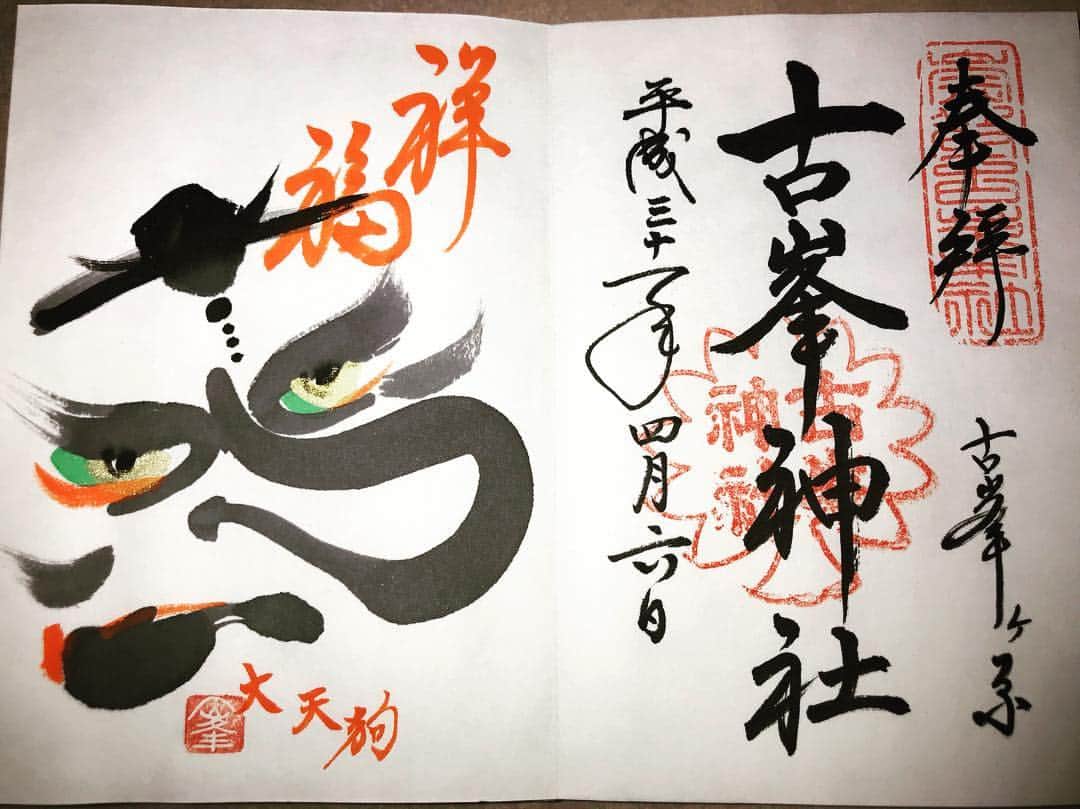 奉拝
古峯ヶ原
古峯神社
古峯神社
平成三十一年四月六日
祥福
大天狗
峯